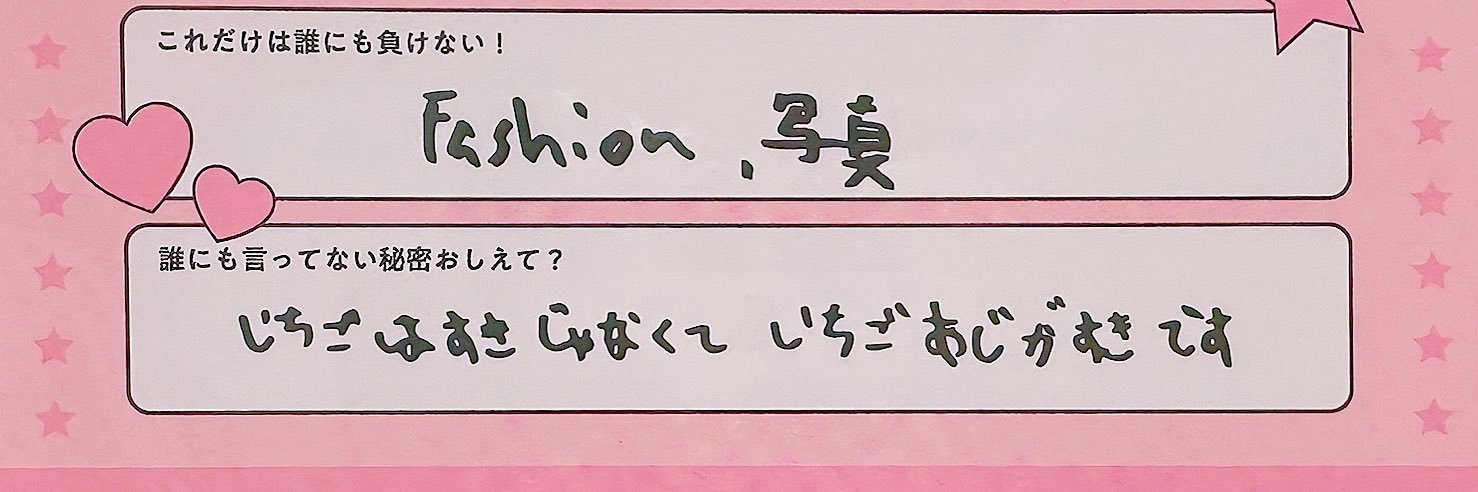 これだけは誰にも負けない！
Fashion、写真
誰にも言ってない秘密おしえて？
いちごはすきじゃなくて いちごあじがすきです